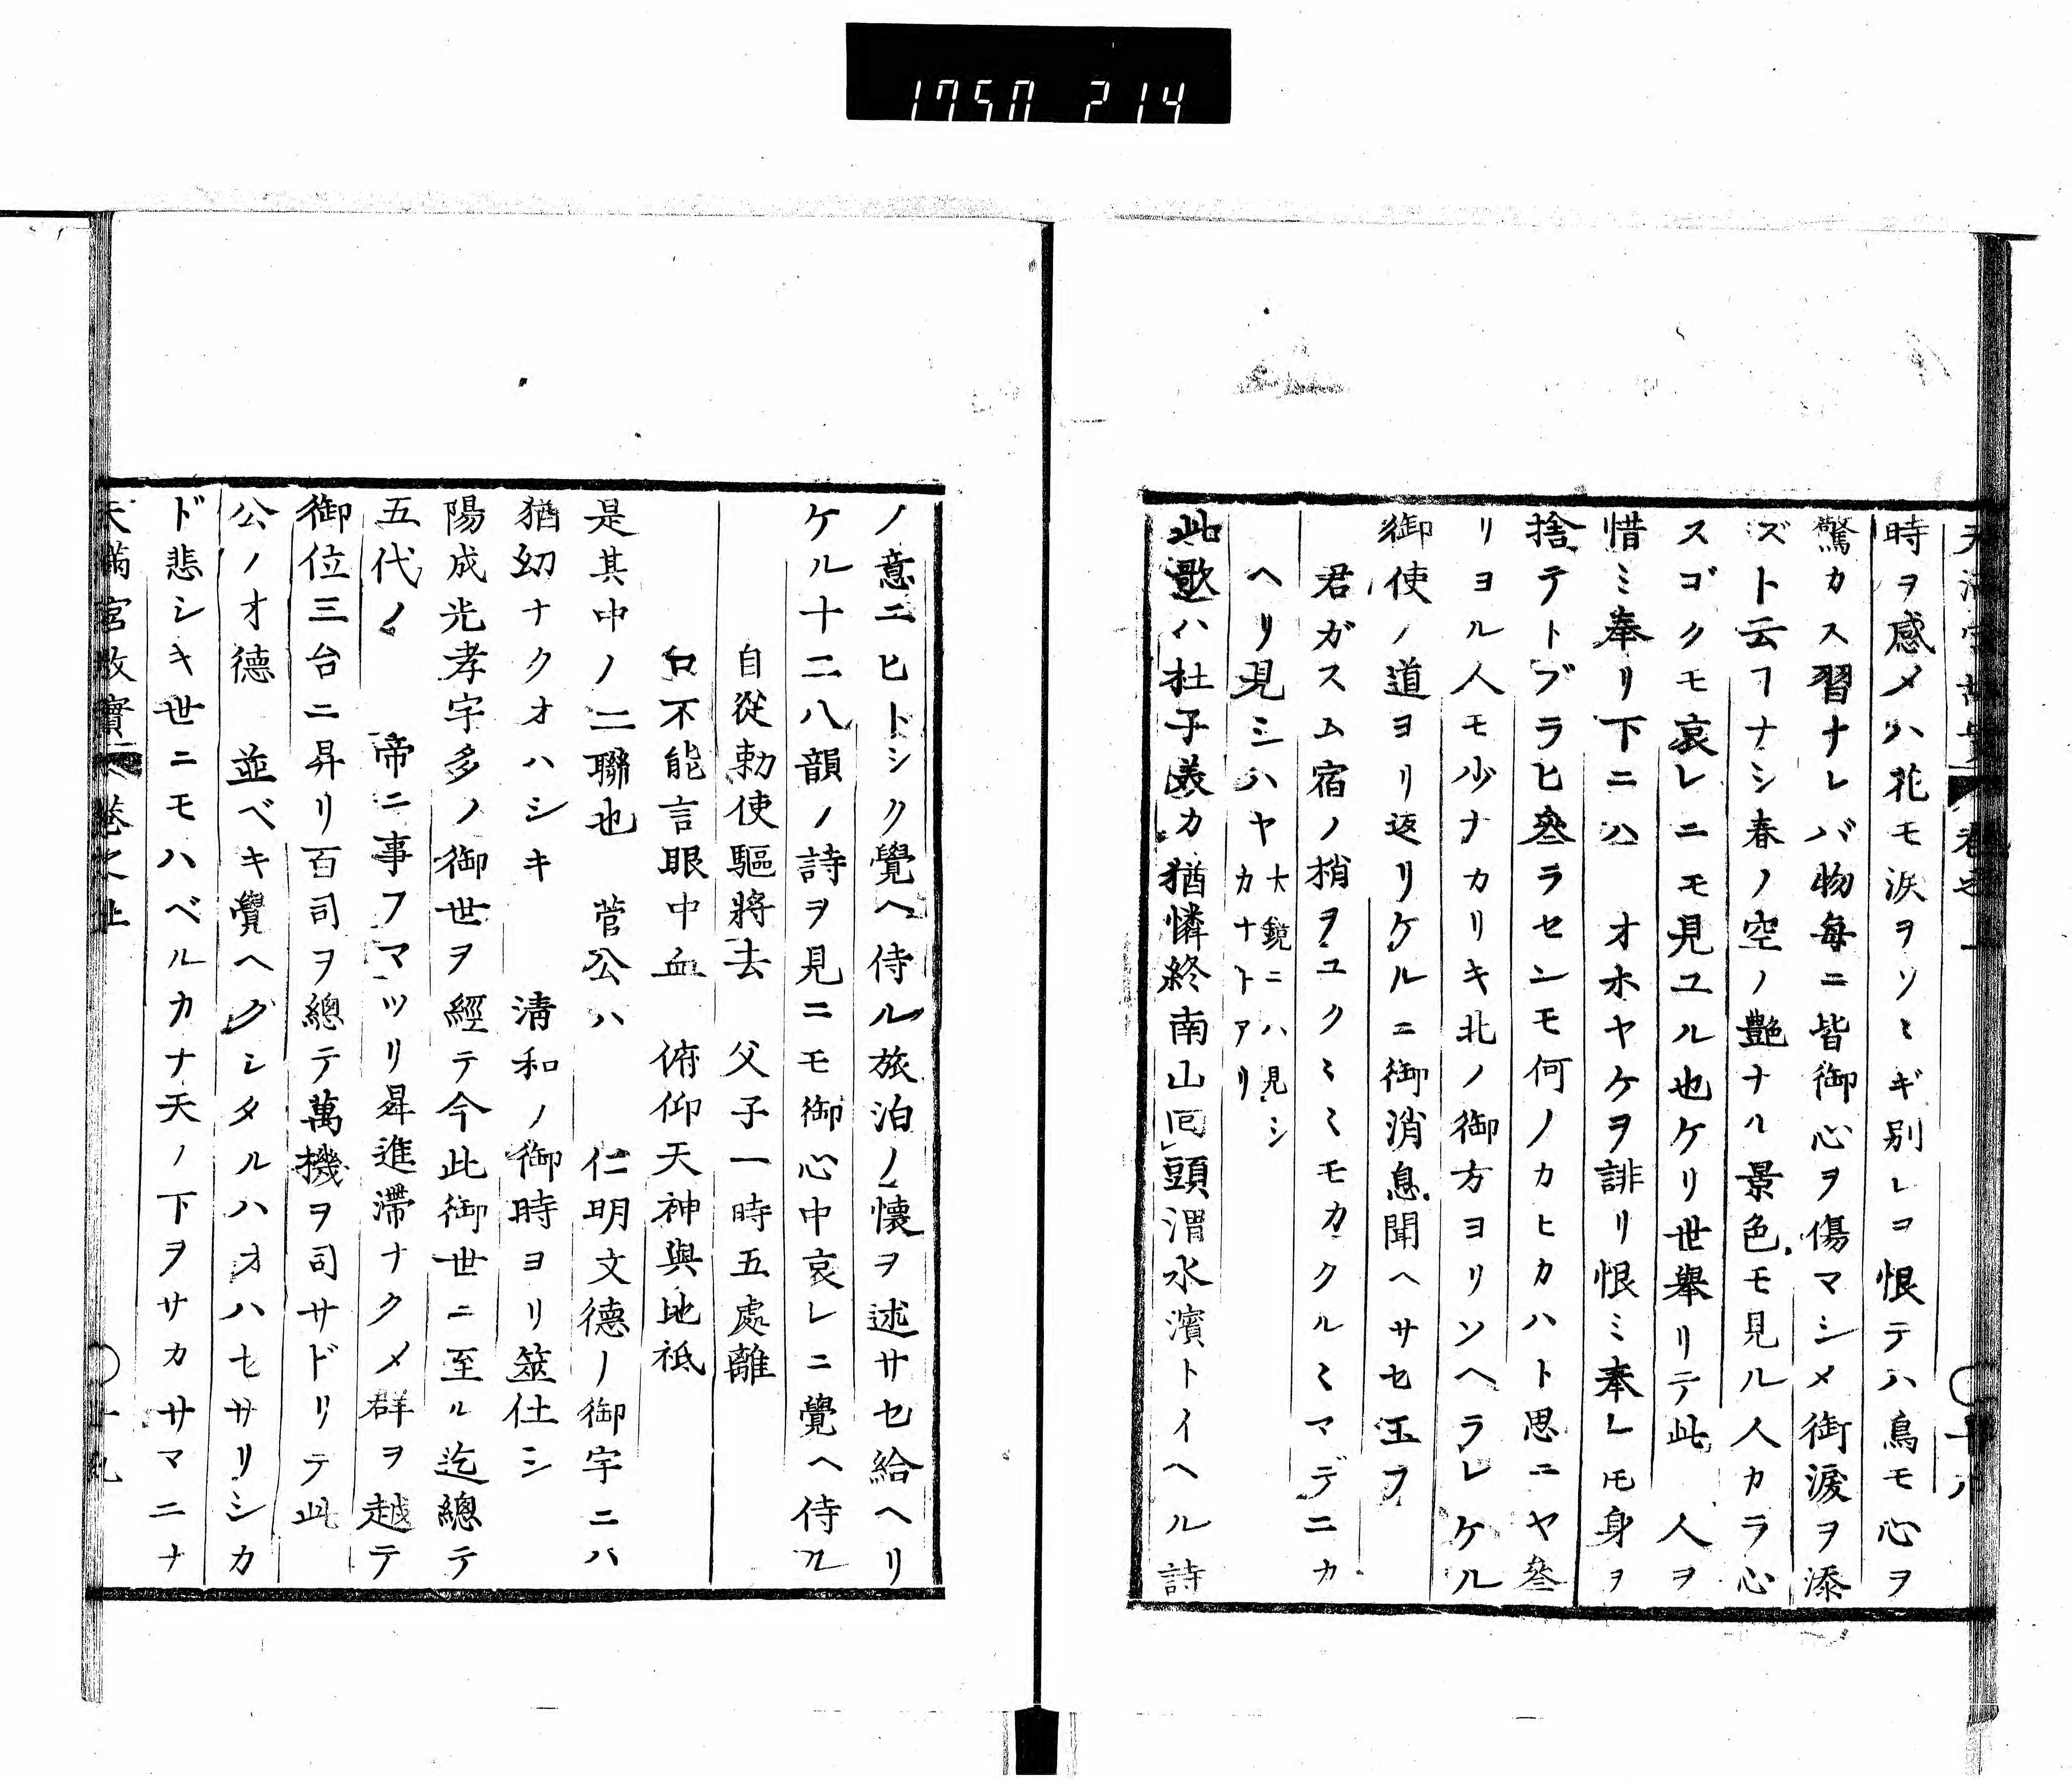 1750 214
時ヲ感メハ花モ涙ヲソヽギ別レヲ恨テハ鳥モ心ヲ
驚カス習ナレバ物毎ニ皆御心ヲ傷マシメ御淚ヲ添
ズト云フナシ春ノ空ノ艶ナル景色モ見ル人カラ心
スゴクモ哀レニモ見ユル也ケリ世舉リテ此 人ヲ
惜ミ奉リ下ニハ オホヤケヲ誹リ恨ミ奉レ𪜈身ヲ
捨テトブラヒ叅ラセンモ何ノカヒカハト思ニヤ叅
リヨル人モ少ナカリキ北ノ御方ヨリソヘラレケル
御使ノ道ヨリ返リケルニ御消息聞ヘサセ玉フ
君ガスム宿ノ梢ヲユクヽミモカクルヽマデニカ
ヘリ見シハヤ 大鏡ニハ見シ
カナトアリ
此歌ハ杜子美カ猶憐終南山囘頭渭水濱トイヘル詩
ノ意ニヒトシク覺ヘ侍ル旅泊ノ懷ヲ述サセ給ヘリ
ケル十二八韻ノ詩ヲ見ニモ御心中哀レニ覺ヘ侍ル
自從勅使驅將去 父子一時五處離
口不能言眼中血 俯仰天神與地祇
是其中ノ二聯也 菅公ハ 仁明文德ノ御宇ニハ
猶幼ナクオハシキ 淸和ノ御時ヨリ筮仕シ
陽成光孝宇多ノ御世ヲ經テ今此御世ニ至ル迄總テ
五代ノ 帝ニ事フマツリ昇進滯ナクメ群ヲ越テ
御位三台ニ昇リ百司ヲ總テ萬機ヲ司サドリテ此
公ノオ德 並ベキ覺ヘグシタルハオハセサリシカ
ド悲シキ世ニモハベルカナ天ノ下ヲサカサマニナ
天滿宮故實 卷之上 〇十九